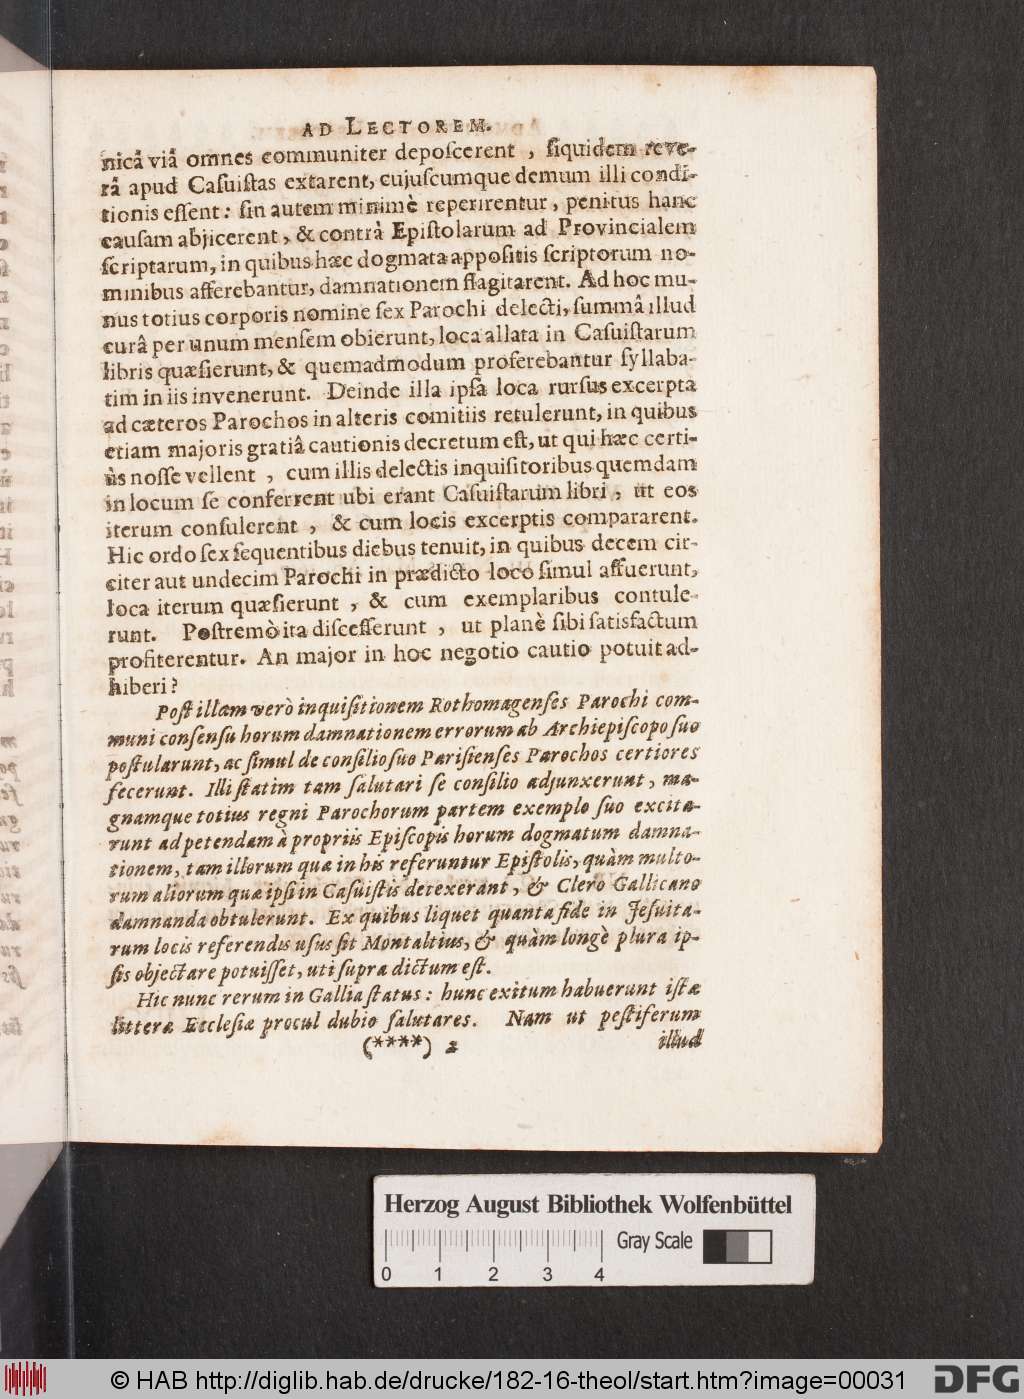 AD LECTOREM.
nicâ viâ omnes communiter deposcerent , siquidem reve-
râ apud Casuistas extarent, cujuscumque demum illi condi-
tionis essent: sin autem minimè reperirentur, penitus hanc
causam abjicerent, & contrà Epistolarum ad Provincialem
scriptarum, in quibus hæc dogmata appositis scriptorum no-
minibus afferebantur, damnationem flagitarent. Ad hoc mu-
nus totius corporis nomine sex Parochi delecti, summâ illud
curâ per unum mensem obierunt, loca allata in Casuistarum
libris quæsierunt, & quemadmodum proferebantur syllaba-
tim in iis invenerunt. Deinde illa ipsa loca rursus excerpta
ad cæteros Parochos in alteris comitiis retulerunt, in quibus
etiam majoris gratiâ cautionis decretum est, ut qui hæc certi-
ùs nosse vellent , cum illis delectis inquisitoribus quemdam
in locum se conferrent ubi erant Casuistarum libri , ut eos
iterum consulerent , & cum locis excerptis compararent.
Hic ordo sex sequentibus diebus tenuit, in quibus decem cir-
citer aut undecim Parochi in prædicto loco simul affuerunt,
loca iterum quæsierunt , & cum exemplaribus contule-
runt. Postremò ita discesserunt , ut planè sibi satisfactum
profiterentur. An major in hoc negotio cautio potuit ad-
hiberi?
Post illam verò inquisitionem Rothomagenses Parochi com-
muni consensu horum damnationem errorum ab Archiepiscopo suo
postularunt, ac simul de consilio suo Parisienses Parochos certiores
fecerunt. Illi statim tam salutari se consilio adjunxerunt, ma-
gnamque totius regni Parochorum partem exemplo suo excita-
runt ad petendam à propriis Episcopis horum dogmatum damna-
tionem, tam illorum quæ in his referuntur Epistolis, quàm multo-
rum aliorum quæ ipsi in Casuistis detexerant, & Clero Gallicano
damnanda obtulerunt. Ex quibus liquet quanta fide in Jesuita-
rum locis referendis usus sit Montaltius, & quàm longè plura ip-
sis objectare potuisset, uti supra dictum est.
Hic nunc rerum in Gallia status: hunc exitum habuerunt istæ
litteræ Ecclesiæ procul dubio salutares. Nam ut pestiferum
(****) 2 illud
Herzog August Bibliothek Wolfenbüttel
Gray Scale
0 1 2 3 4
© HAB http://diglib.hab.de/drucke/182-16-theol/start.htm?image=00031
DFG